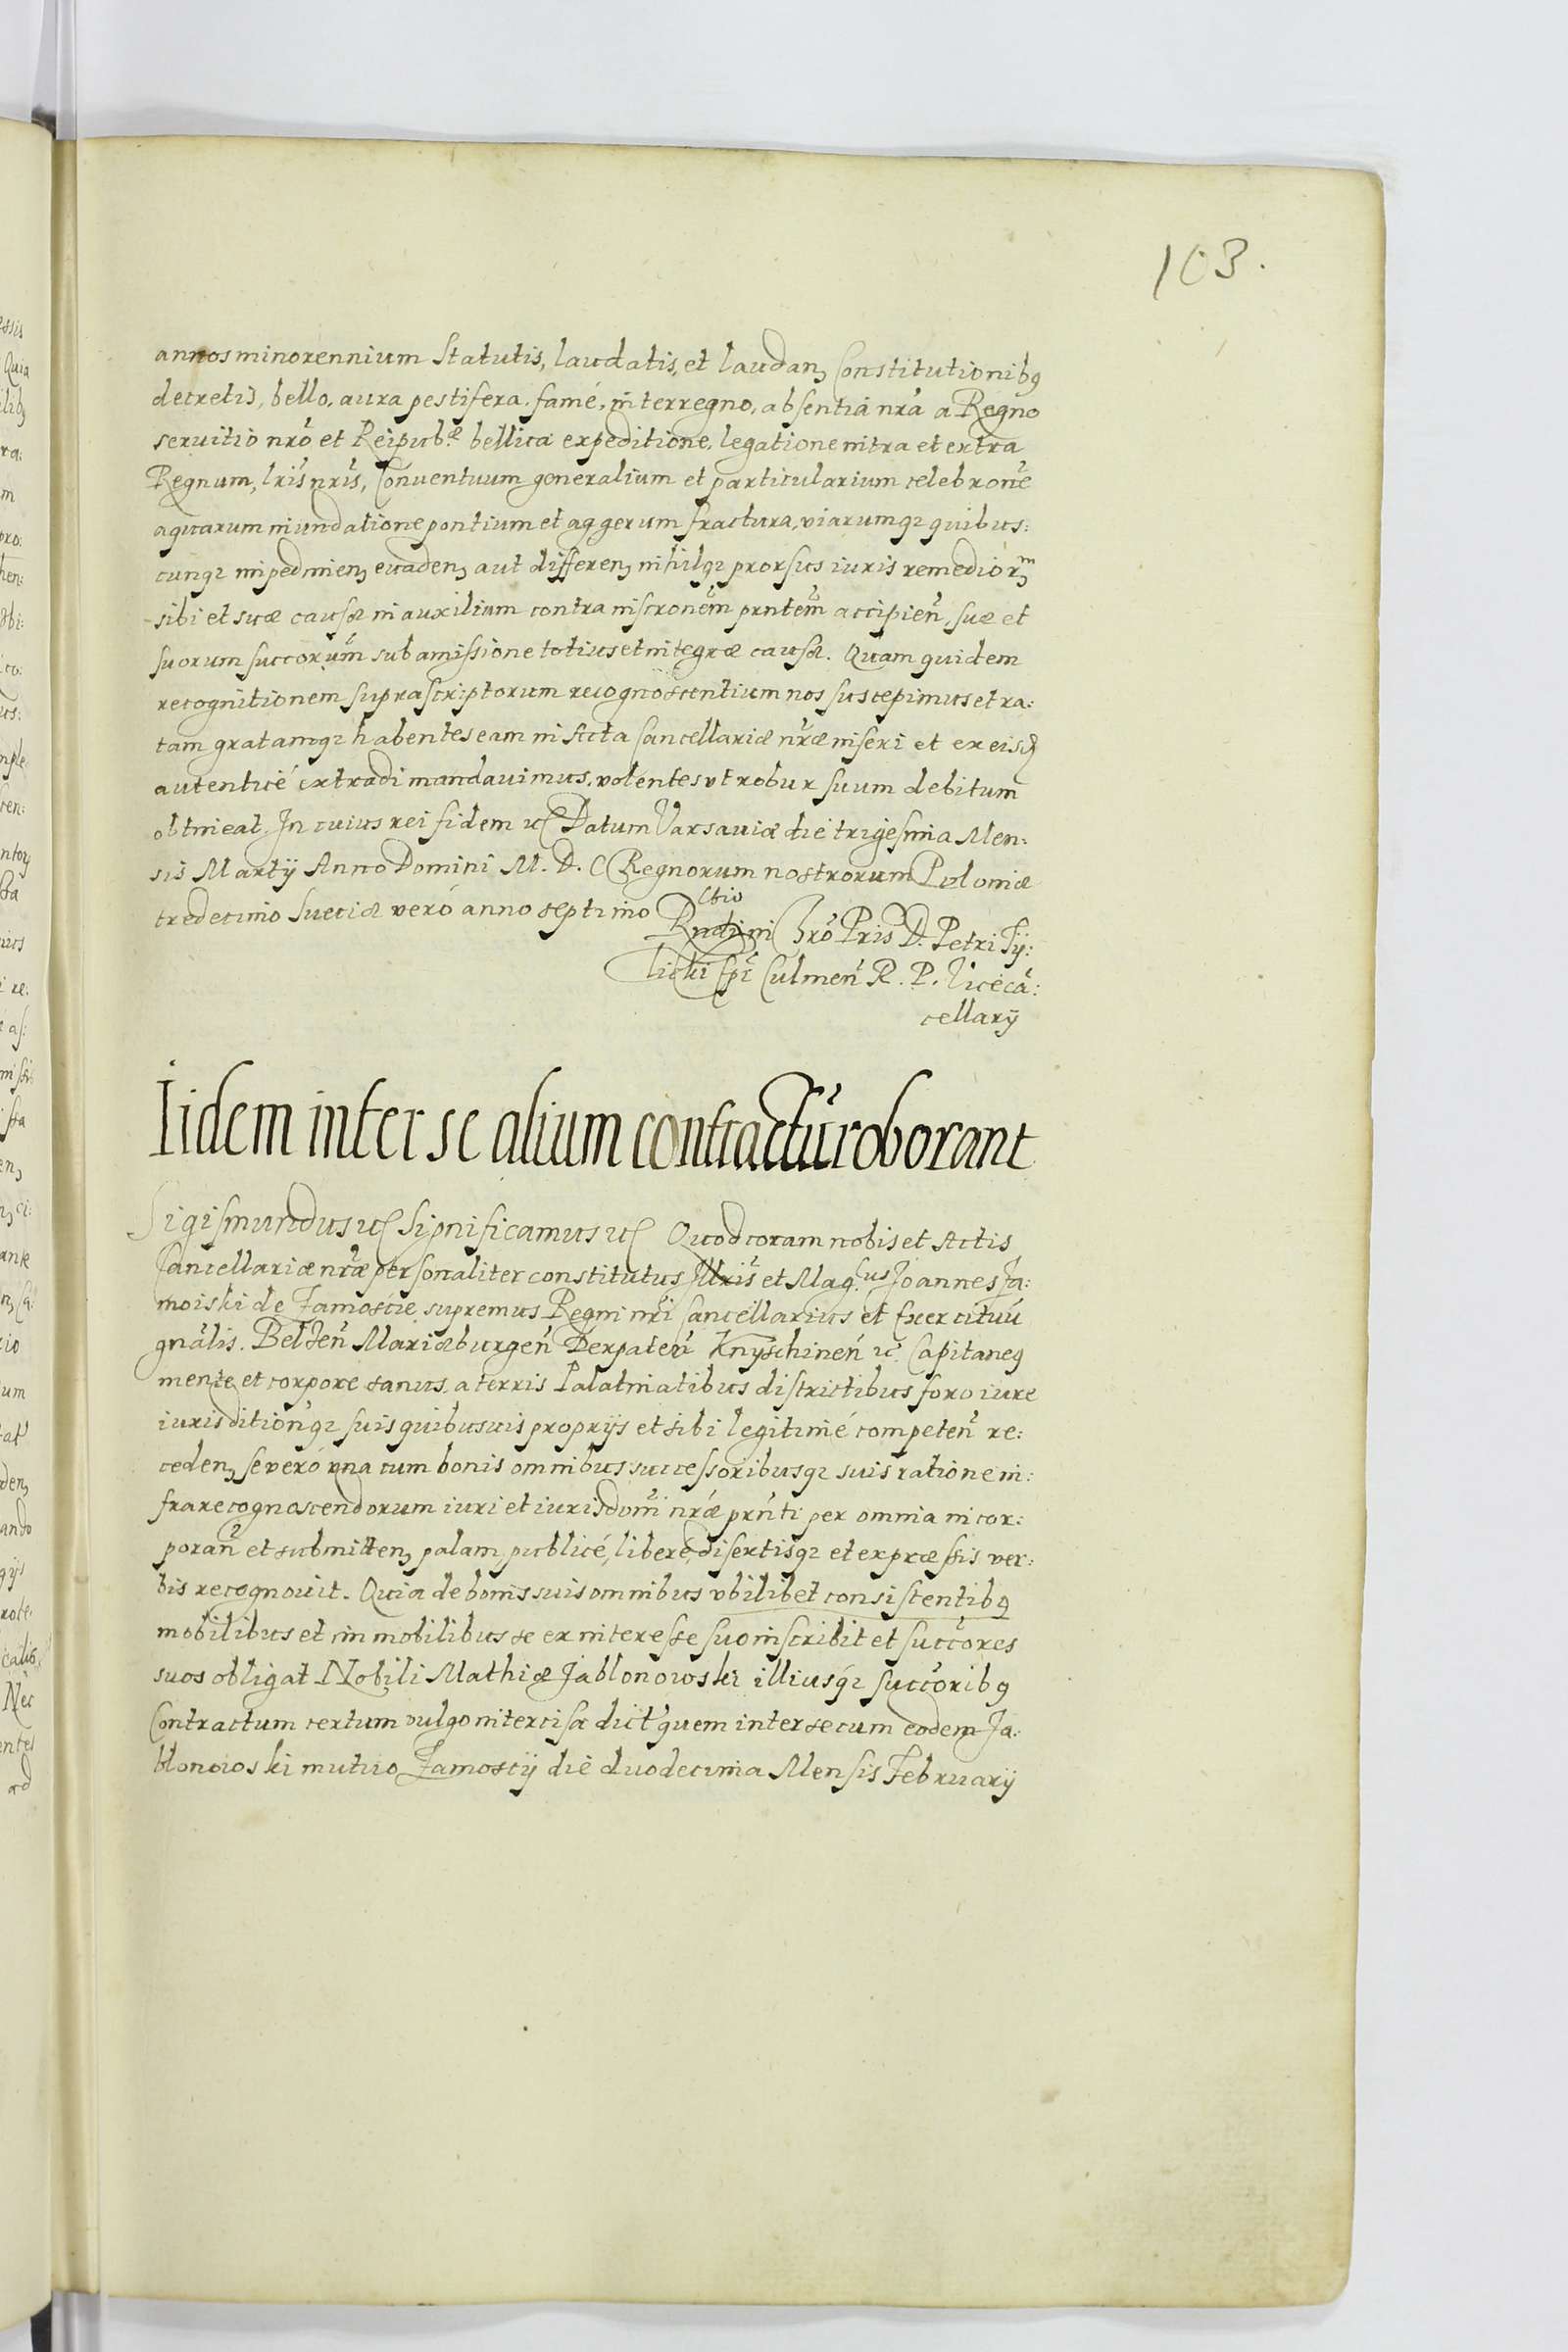 103.
annos minorennium Statutis, laudatis, et laudanʒ Constitutionibꝯ
decretis, bello, aura pestifera, famé, interregno, absentiâ nrã a Regno
seruitio nrõ et Reipub.ᵃᵉ bellica expeditione, legatione intra et extra
Regnum, lris̃ nris̃, Conuentuum generalium et particularium celebronẽ
aquarum inundatione pontium et aggerum fractura, viarumqꝫ quibus:
cunqꝫ impedimenʒ euadenʒ aut differenʒ nihilqꝫ prorsus iuris remediorʒᵐ
sibi et suæ causæ in auxilium contra inscronẽm prntẽm accipieñ, suæ et
suorum succorũm sub amissione totius et integræ causæ. Quam quidem
recognitionem suprascriptorum recognoscentium nos suscepimus et ra:
tam gratamqꝫ habentes eam in Acta Cancellariæ nr̃æ inseri et ex eisd
autenticé extradi mandauimus, volentes vt robur suum debitum
obtineat. In cuius rei fidem ꝛc Datum Varsauiæ die trigesima Men:
sis Martij Anno Domini M. D. C Regnorum nostrorum Poloniæ
tredecimo Sueciæ veró anno septimo
ctio
Rndimi Xrõ Pris D. Petri Ty:
licki Epĩ Culmeñ R. P. Vicecã:
cellarij
Iidem inter se alium contractũ roborant
Sigismundus ꝛc Significamus ꝛc Quod coram nobis et Actis
Cancellariæ nr̃æ personaliter constitutus Illris̃ et Mag.ᶜᵘˢ Joannes Za:
moiski de Zamoscie supremus Regni nrĩ Cancellarius et Exercituũ
gnãlis. Belzeñ Mariæburgeñ Derpateñ Knyschineñ ꝛc. Capitaneꝯ
mente et corpore sanus, a terris Palatinatibus districtibus foro iure
iurisditioñqꝫ suis quibusuis proprijs et sibi legitimé competeñ re:
cedenʒ se veró vna cum bonis omnibus successoribusqꝫ suis ratione in:
fra recognoscendorum iuri et iurisdoni nr̃æ prñti per omnia incor:
porañ et submittenʒ palam, publicé, liberé, disertisqꝫ et expræssis ver:
bis recognouit. Quia de bonis suis omnibus vbilibet consistentibꝯ
mobilibus et immobilibus se ex interesse suo inscribit et succõres
suos obligat Nobili Mathiæ Jablonowski illiusqꝫ succõribꝯ
Contractum certum vulgo intercisæ dict̃ quem inter se cum eodem Ja:
blonowski mutuo Zamoscij die duodecima Mensis Februarij